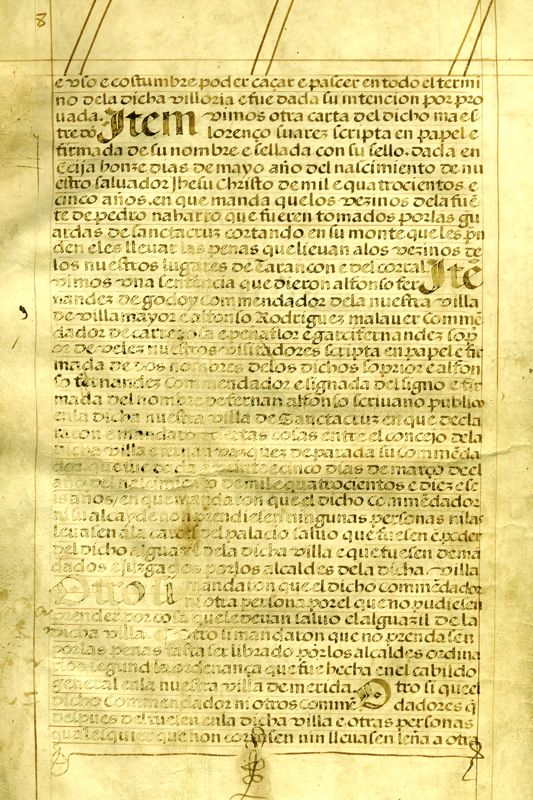 8
e vso e costumbre poder caçar e pascer en todo el termi
no dela dicha villoria e fue dada su intencion por pro
uada. Item vimos otra carta del dicho maes
tre dõ lorenço suarez scripta en papel e
firmada de su nombre e sellada con su sello. dada en
Ecija honze dias de mayo año del nascimiento de nu
estro saluador Jhesu Christo de mil e quatrocientos e
cinco años. en que manda quelos vezinos dela fuẽ
te de pedro naharro que fueren tomados por las gu
ardas de sanctacruz cortando en su monte que les pñ
den e les llevar las penas que lievan alos vezinos de
los nuestros lugares de Tarancon e del corral Itẽ
vimos vna sentẽcia que dieron alfonso fer
nandez de godoy commendador dela nuestra villa
de villa mayor e alfonso Rodriguez malauer commẽ
dador de e peñaflor e garcifernandez sop
or de velez nuestros visitadores scripta en papel e fir
mada de dos nombres delos dichos soprior e alfon
so fernandez commendador e signada del signo e fir
mada del nombre de fernan alfonso scrivano publico
enla dicha nuestra villa de Sanctacruz en que decla
raron e mandaron cosas entre el concejo dela
dicha villa e vazquez de parada su commẽda
dor que fue dada a veinte e cinco dias de março de el
año del nascimiento de mile quatrocientos e diez e se
is años / en que mandaron que el dicho commẽdador
ni su alcayde non prendiesen ningunas personas nilas
leuasen ala carcel del palacio saluo que fuesen
del dicho alguazil dela dicha villa e que fuesen demã
dados e juzgados por los alcaldes dela dicha villa
Otrosi mandaron que el dicho commẽdador
ni otra persona por el que no pudiesen
prender por cosa quele devan saluo el alguazil de la
dicha villa. Otro si mandaron que no prenda sen
por las penas fasta ser librado por los alcaldes ordina
segund la ordenança que fue hecha en el cabildo
general enla nuestra villa de merida. Otro si que el
dicho Commendador ni otros commẽdadores q̃
despues del viesen enla dicha villa e otras personas
qualesquier que non cortasen nin llevasen leña a otra